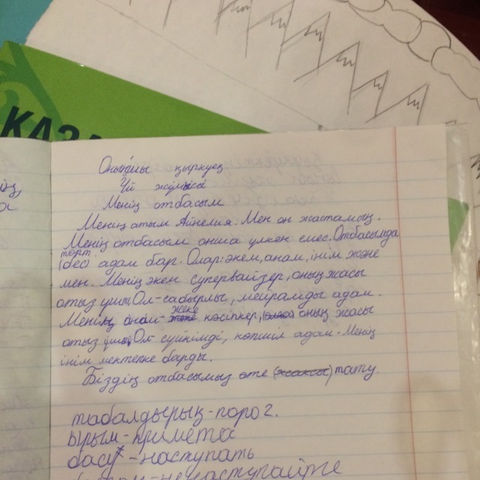 ҚАЗА
Оныншы қыркүек
Үй жұмысы
Менің отбасым
Менің атым Айнелия. Мен он жастамын.
Менің отбасым онша үлкен емес. Отбасымда
төрт
(бес) адам бар. Олар: әкем, анам, інім және
мен. Менің әкем супервайзер, оның жасы
отыз үш. Ол - сабырлы, мейрамды адам.
және
Менің анам - кәсіпкер, оның жасы
отыз үш. Ол сүйкімді, көпшіл адам. Менің
інім мектепке барды.
Біздің отбасымыз өте (жақсы) тату.
табалдырық - порог.
ырым - примета
басу - наступать
- не наступайте